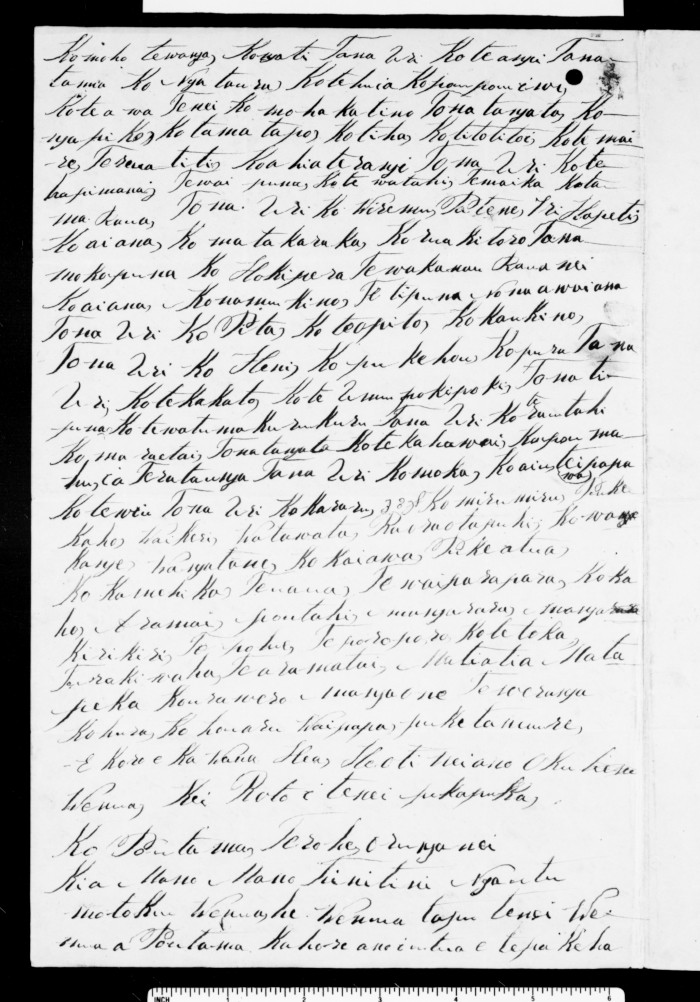 Ko moho tewanga, Kowati Tana Uri Koteangi Tana
tamia Ko Nga taura, Kotehuia Kopaupau iwi,
Kotea wa Tenei Ko moha katino Tona tangata, Ko
nga pi ko, Kotama tapo, Kotiha, Kotitotitoi, Kote mai
re, Terena titi, Koahiaterangi Tona Uri Kote
hapimana, Tewai puna, Kote watahi, Temaika Kota
ma Raua, Tona Uri Ko Wiremu, Patene, Iri Hapeti,
Koaiana, Ko ma ta karaka, Korua kitoro Tana
mokopuna Ko Hokipera Tewakanau Raua nei
Koaiana, Konamukino, Te tipuna Nonaawaiana
Tona Uri Ko Pita, Koteapito, Kokaukino,
Tona Uri Ko Heni, Ko pu ke hou, Kopura Ta na
Uri, Kotekakato, Kote Umu pokipoki, Tona ti
puna Kotewatumakurukuru Tana Uri Korautahi
Ko, ma raetai, Tonatangata Kotekahawai, Kaipau ma
hu, ia Terataunga Tana Uri Komoka, Koaiu teipapa
Kotewiu Tona Uri Kokararu, Komirumiru,
Kaho, Waikeri, Watawata, Ruaraotapuhi, Kowanga
Kange, Wangatane, Kokaiawa, Pukeatua,
Ko Kamehika, Tonana, Te waiparapara, Koka
ho, Aramai, poutahi, mangarara, manga
Kirikiri, Te pohu, Teporoporo, Kotetoka,
Turakiwaha, Tearamatai, Matiatia Mata
peka Kourawero mangaone Teweranga
Kohura, Ko houaru Waipapa, puketamure,
E Koro e Ka Wana Hea, Heoti neiano Oku hiena
Wenua, Kei Roto i tenei pukapuka,
Ko Poutama, Terohe, orunga nei
Kia Mano Mano Tinitini Ngautu
motoku Wenua, he Wenua tapu tenei We
nua a Poutama Kahore ano i utua e tepa Keha